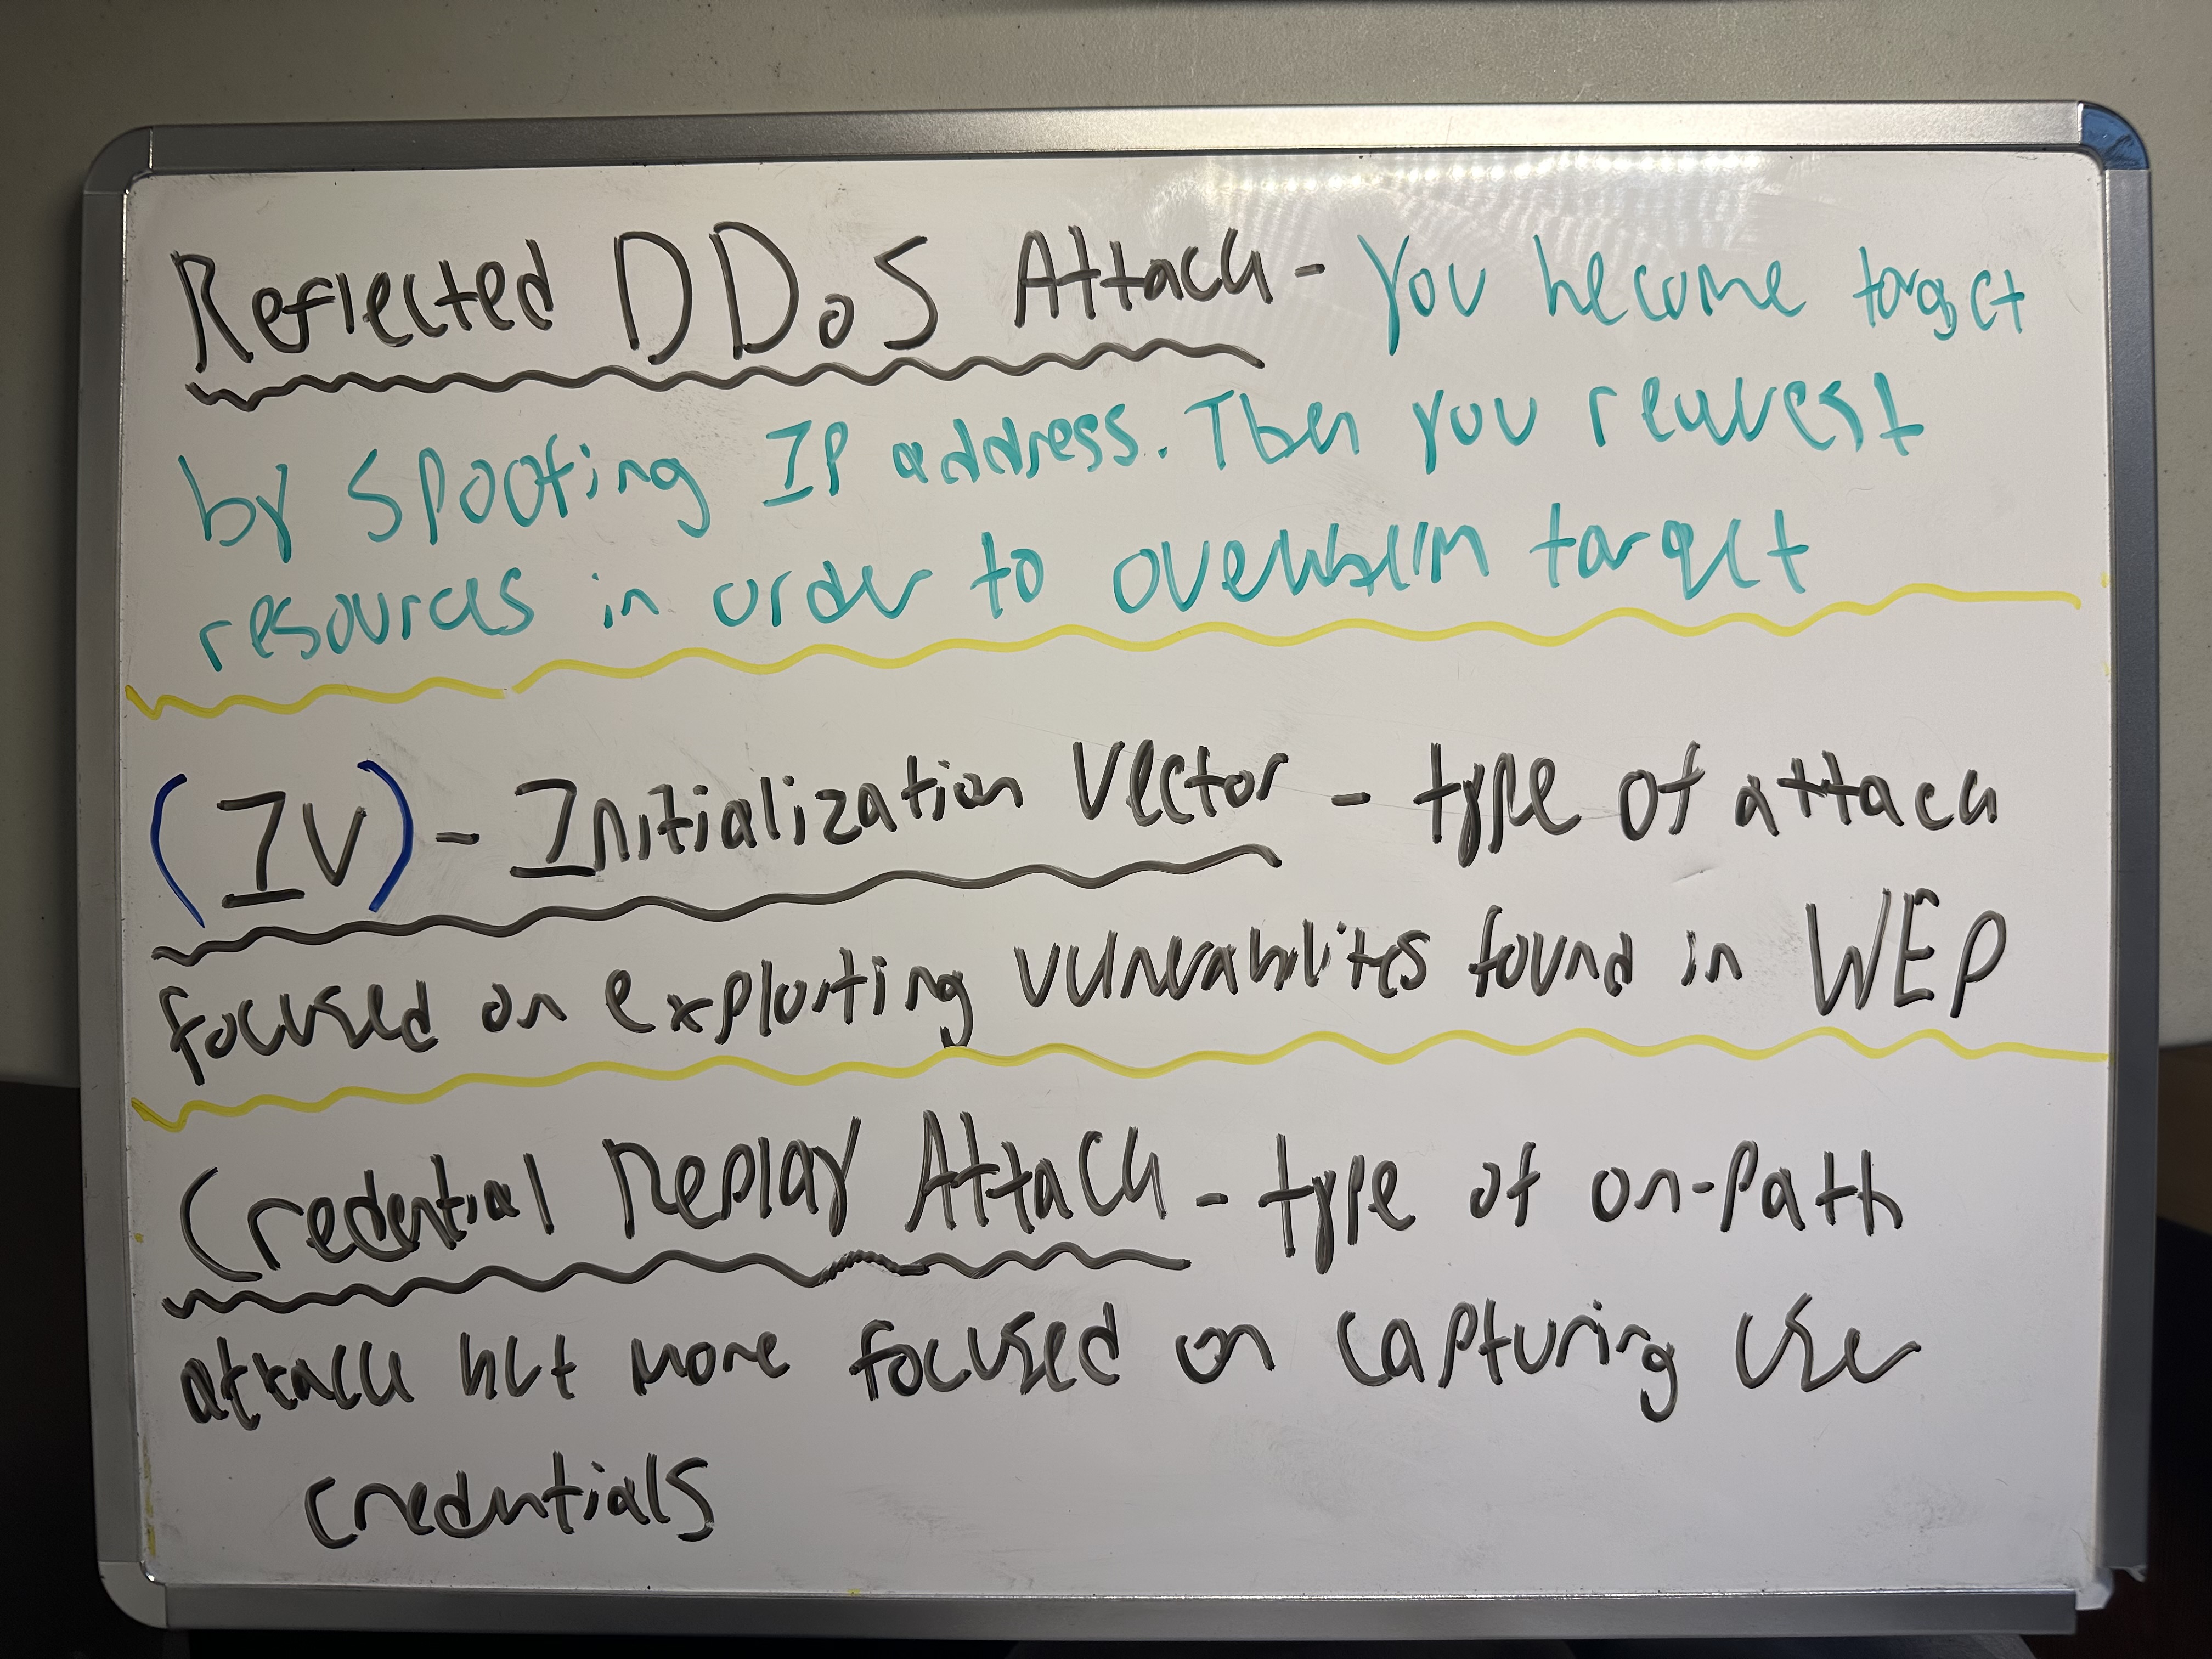 Reflected DDoS Attack - You become target
by spoofing IP address. Then you request
resources in order to overwhelm target
(IV) - Initialization Vector - type of attack
focused on exploiting vulnerabilites found in WEP
Credential Replay Attack - type of on-path
attack but more focused on capturing user
credentials